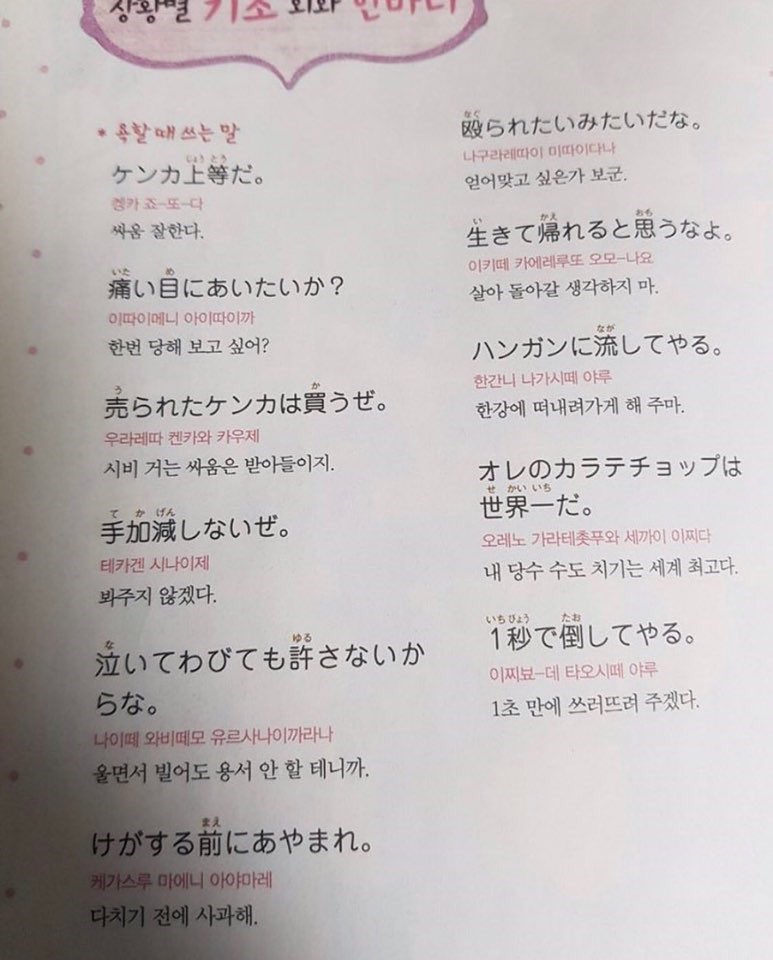 상황별 기초 회화 한마디
* 욕할 때 쓰는 말
じょう とう
ケンカ上等だ。
켕카 죠-또-다
싸움 잘한다.
いた め
痛い目にあいたいか？
이따이메니 아이따이까
한번 당해 보고 싶어?
う か
売られたケンカは買うぜ。
우라레따 켄카와 카우제
시비 거는 싸움은 받아들이지.
て か げん
手加減しないぜ。
테카겐 시나이제
봐주지 않겠다.
な ゆる
泣いてわびても許さないか
らな。
나이떼 와비떼모 유르사나이까라나
울면서 빌어도 용서 안 할 테니까.
まえ
けがする前にあやまれ。
케가스루 마에니 아야마레
다치기 전에 사과해.
なぐ
殴られたいみたいだな。
나구라레따이 미따이다나
얻어맞고 싶은가 보군.
い かえ おも
生きて帰れると思うなよ。
이키떼 카에레루또 오모-나요
살아 돌아갈 생각하지 마.
なが
ハンガンに流してやる。
한간니 나가시떼 야루
한강에 떠내려가게 해 주마.
オレのカラテチョップは
せ かい いち
世界一だ。
오레노 가라테춋푸와 세까이 이찌다
내 당수 수도 치기는 세계 최고다.
いち びょう たお
1秒で倒してやる。
이찌뵤-데 타오시떼 야루
1초 만에 쓰러뜨려 주겠다.